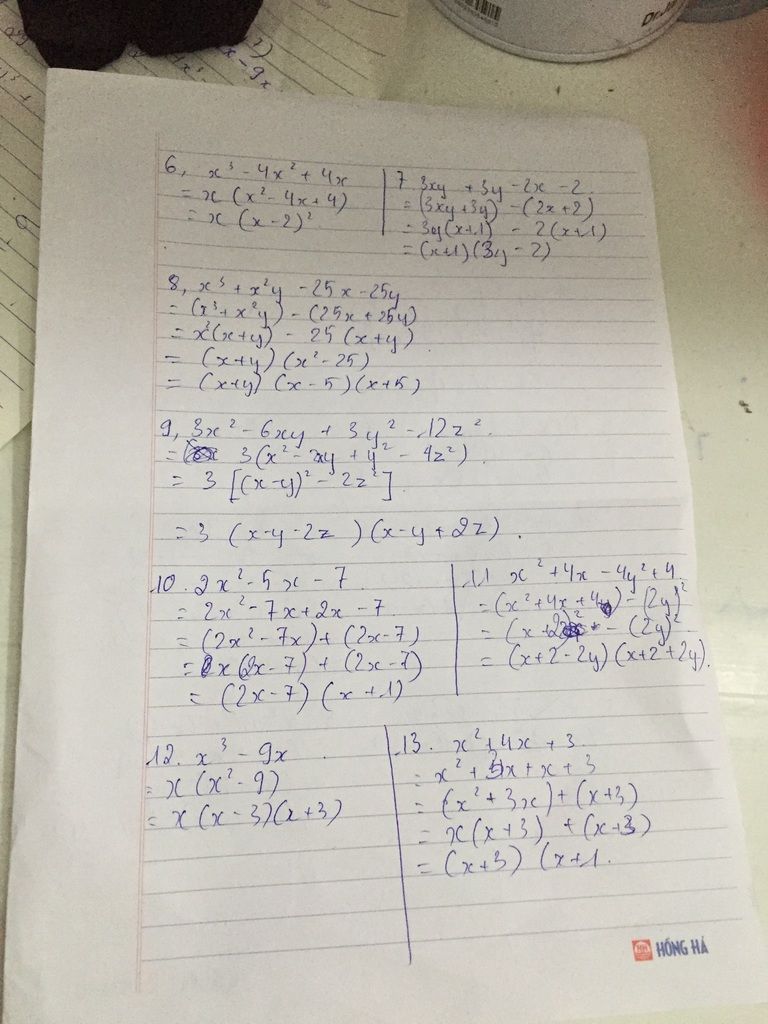 6, x³ - 4x² + 4x
= x (x² - 4x + 4)
= x (x - 2)²
7 3xy + 3y - 2x - 2.
= (3xy + 3y) - (2x + 2)
= 3y(x+1) - 2(x+1)
= (x+1)(3y - 2)
8, x³ + x²y - 25x - 25y
= (x³ + x²y) - (25x + 25y)
= x²(x+y) - 25 (x+y)
= (x+y) (x² - 25)
= (x+y) (x - 5)(x+5)
9, 3x² - 6xy + 3y² - 12z².
= 3(x² - 2xy + y² - 4z²)
= 3 [(x-y)² - 2z²]
= 3 (x-y-2z)(x-y+2z).
10. 2x² - 5x - 7
= 2x² - 7x + 2x - 7
= (2x² - 7x) + (2x - 7)
= x(2x - 7) + (2x - 7)
= (2x - 7) (x + 1)
11 x² + 4x - 4y² + 4
= (x² + 4x + 4) - (2y)²
= (x + 2)² - (2y)²
= (x+2-2y)(x+2+2y).
12. x³ - 9x
= x(x² - 9)
= x(x - 3)(x+3)
13. x² + 4x + 3
= x² + 3x + x + 3
= (x² + 3x) + (x+3)
= x(x+3) + (x+3)
= (x+3) (x+1.
HỒNG HÀ